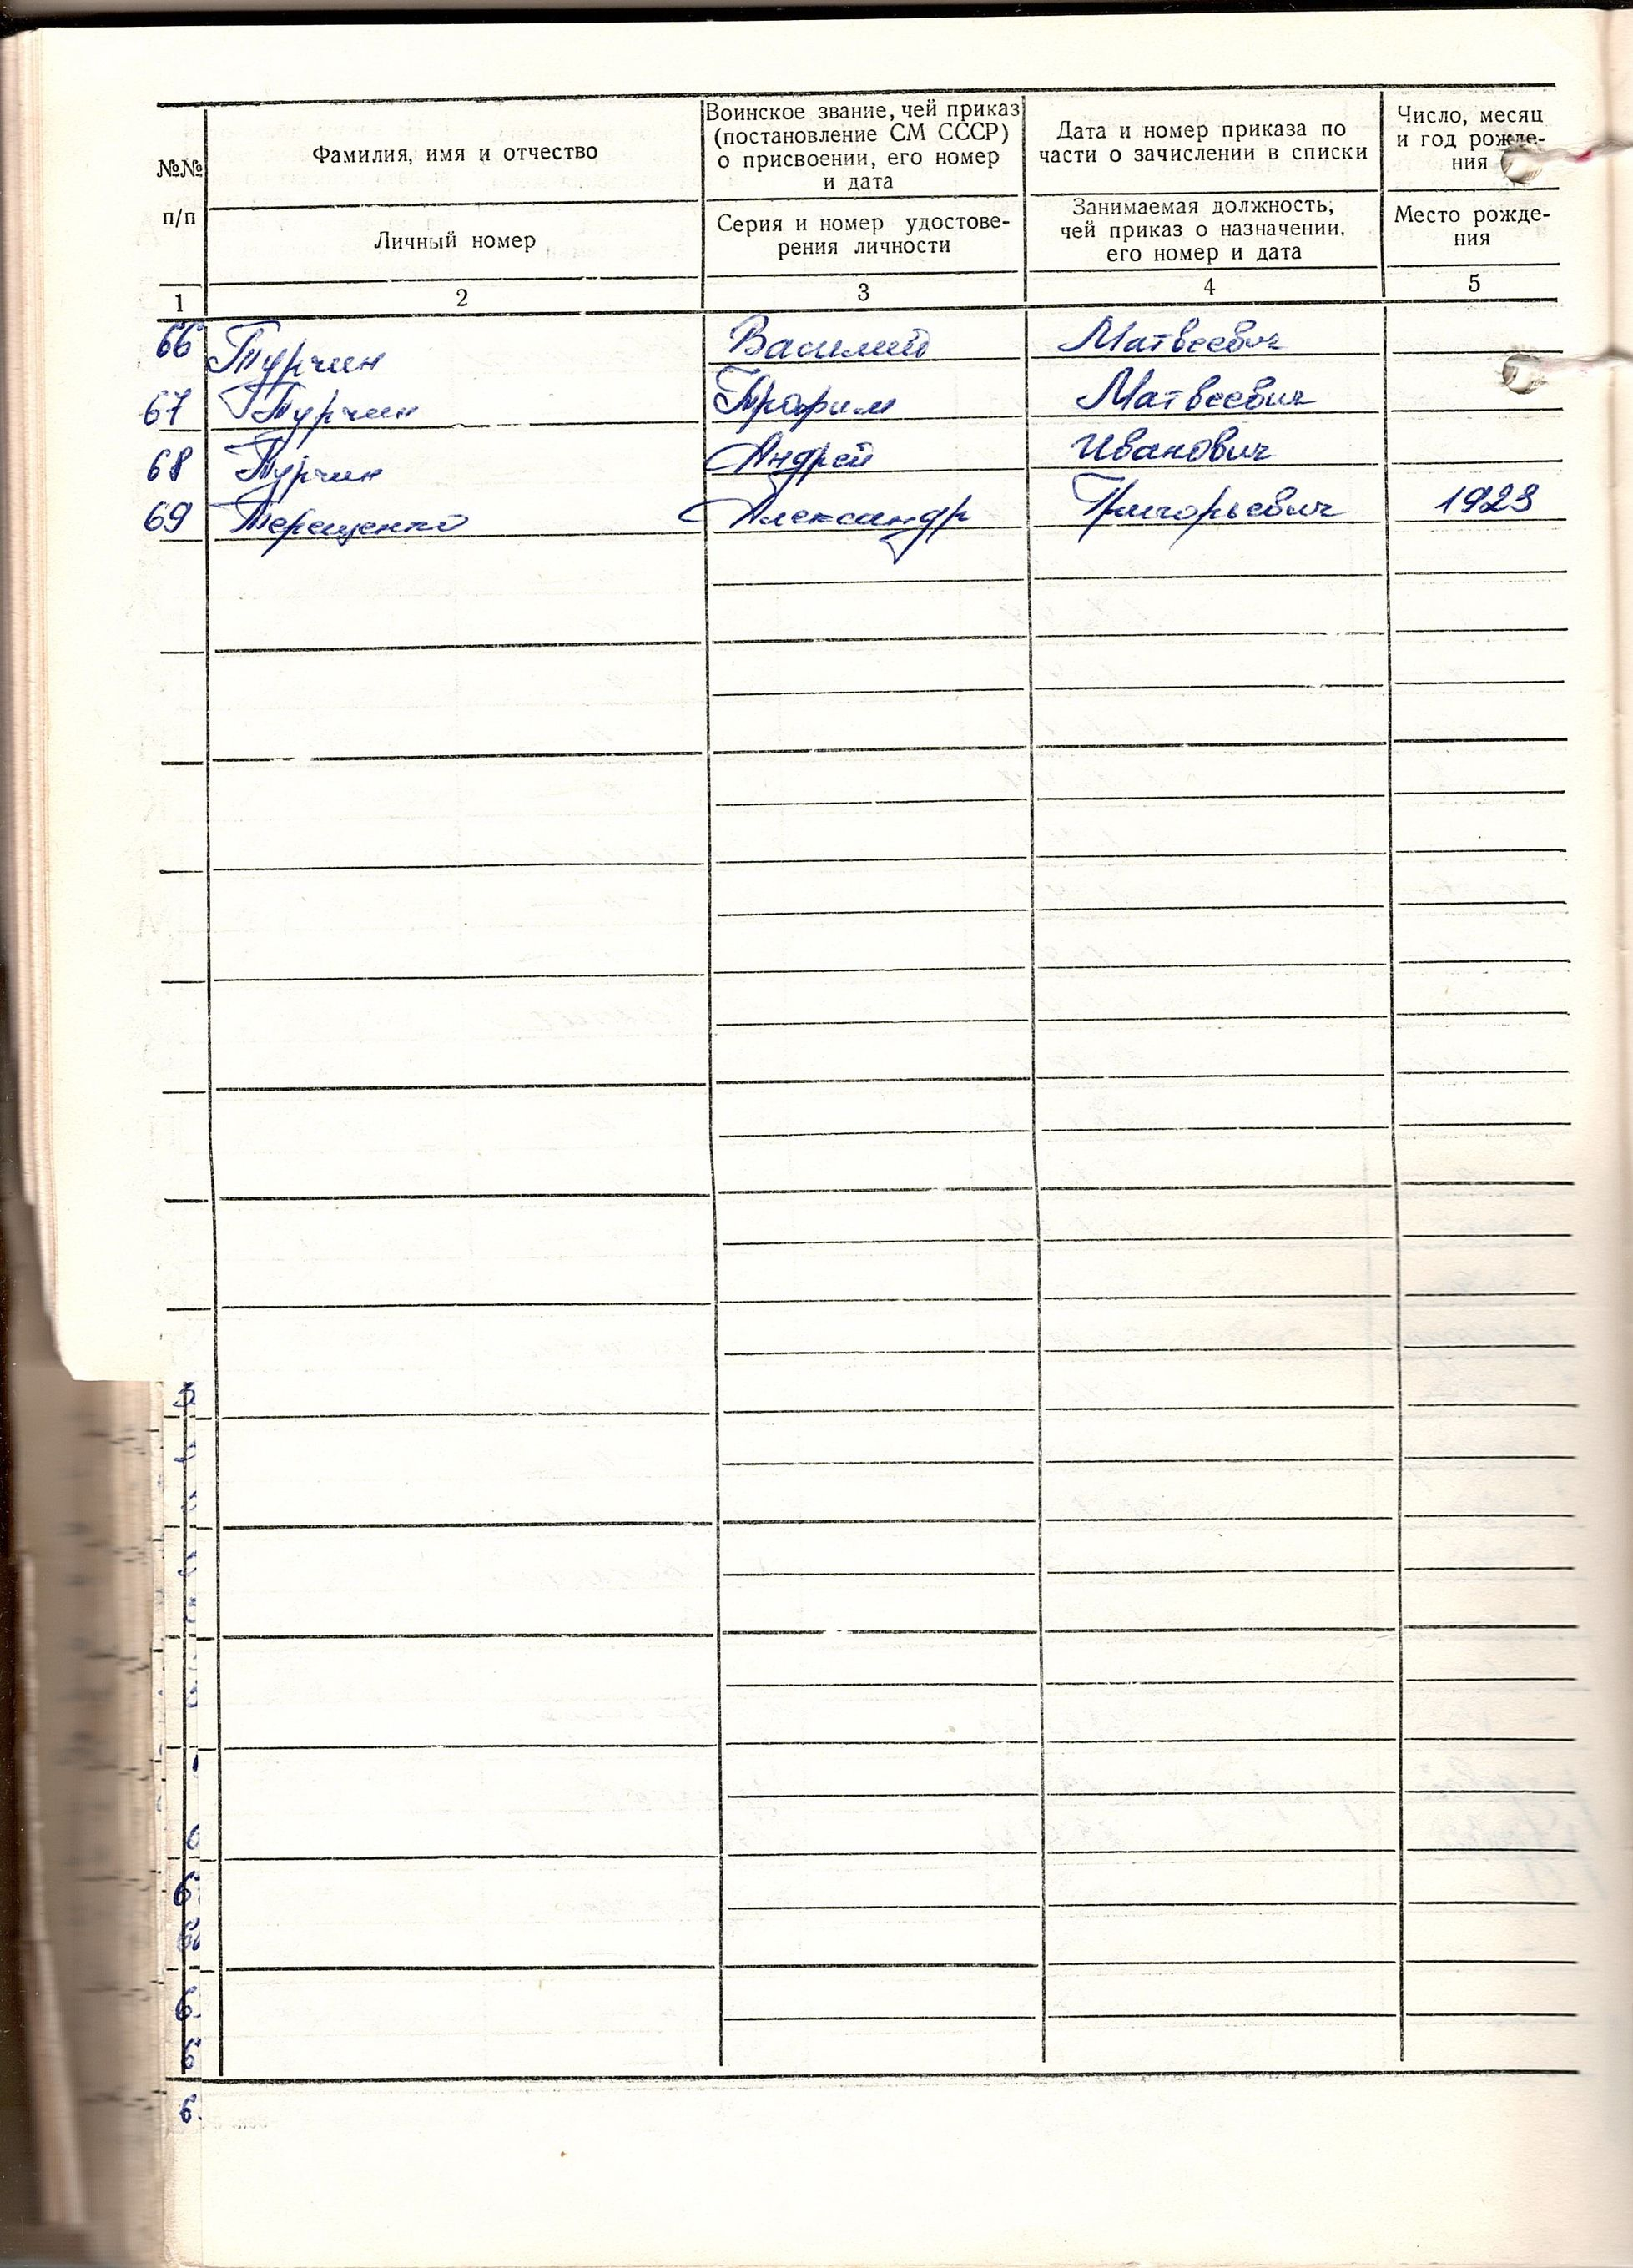 №№ п/п
Фамилия, имя и отчество
Личный номер
Воинское звание, чей приказ
(постановление СМ СССР)
о присвоении, его номер
и дата
Серия и номер удостове-
рения личности
Дата и номер приказа по
части о зачислении в списки
Занимаемая должность,
чей приказ о назначении,
его номер и дата
Число, месяц
и год рожде-
ния
Место рожде-
ния
1 2 3 4 5
66 Турчин Василий Матвеевич
67 Турчин Трофим Матвеевич
68 Турчин Андрей Иванович
69 Терещенко Александр Григорьевич 1923